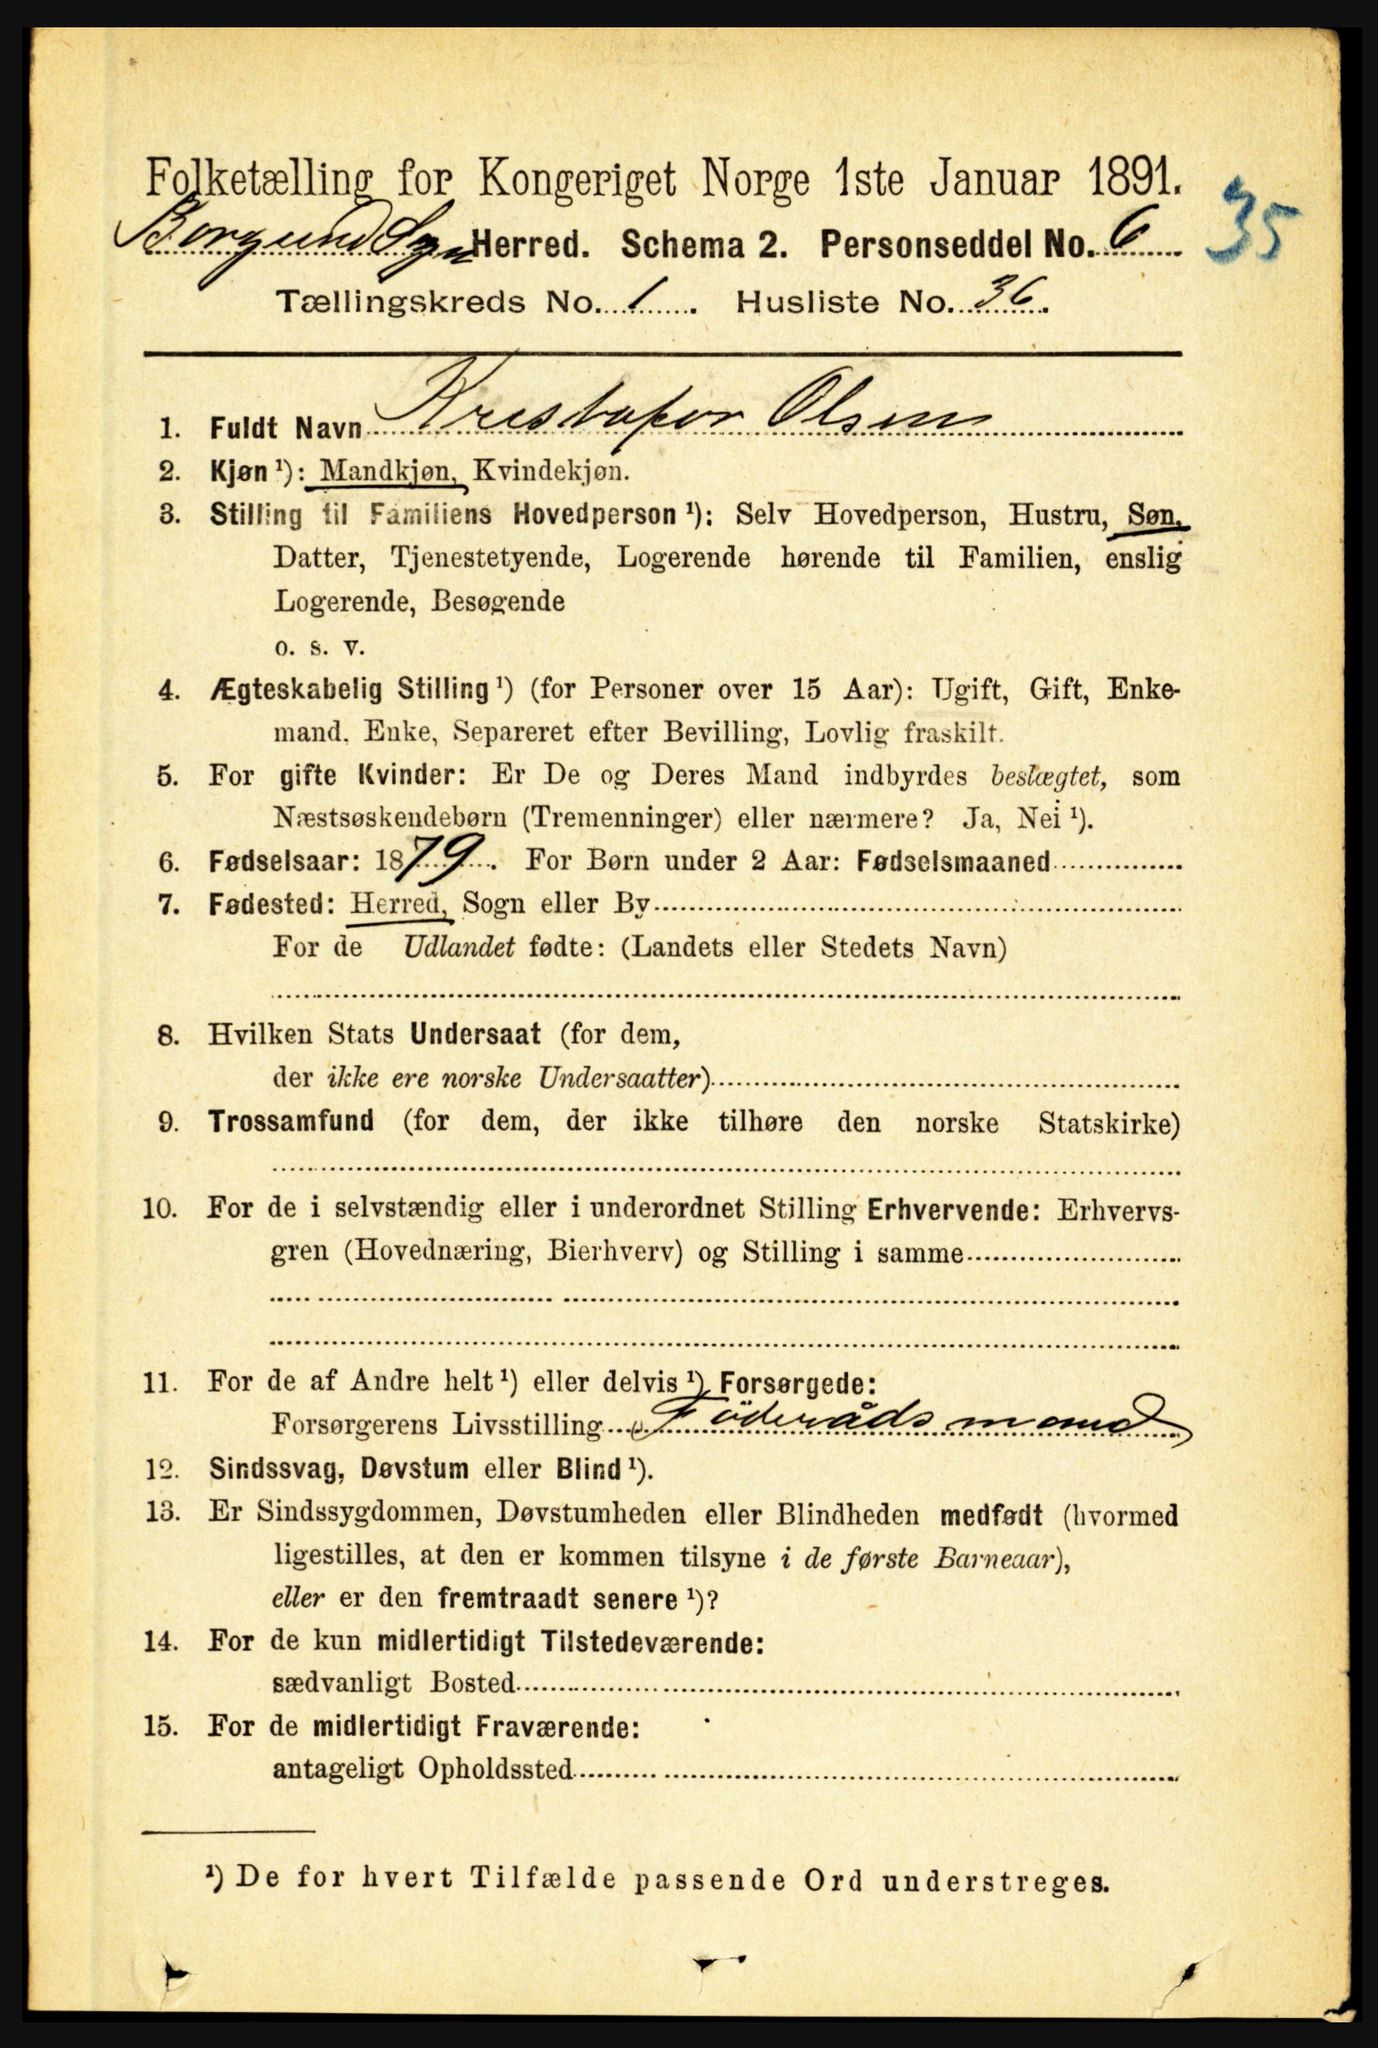 Folketælling for Kongeriget Norge 1ste Januar 1891.
35
Borgund Sgn Herred. Schema 2. Personseddel No. 6
Tællingskreds No. 1. Husliste No. 36.
1. Fuldt Navn Krestofor Olsen
2. Kjøn ¹): Mandkjøn, Kvindekjøn.
3. Stilling til Familiens Hovedperson ¹): Selv Hovedperson, Hustru, Søn,
Datter, Tjenestetyende, Logerende hørende til Familien, enslig
Logerende, Besøgende
o. s. v.
4. Ægteskabelig Stilling ¹) (for Personer over 15 Aar): Ugift, Gift, Enke-
mand, Enke, Separeret efter Bevilling, Lovlig fraskilt.
5. For gifte Kvinder: Er De og Deres Mand indbyrdes beslægtet, som
Næstsøskendebørn (Tremenninger) eller nærmere? Ja, Nei ¹).
6. Fødselsaar: 1879. For Børn under 2 Aar: Fødselsmaaned
7. Fødested: Herred, Sogn eller By
For de Udlandet fødte: (Landets eller Stedets Navn)
8. Hvilken Stats Undersaat (for dem,
der ikke ere norske Undersaatter)
9. Trossamfund (for dem, der ikke tilhøre den norske Statskirke)
10. For de i selvstændig eller i underordnet Stilling Erhvervende: Erhvervs-
gren (Hovednæring, Bierhverv) og Stilling i samme
11. For de af Andre helt ¹) eller delvis ¹) Forsørgede:
Forsørgerens Livsstilling Föderådsmand
12. Sindssvag, Døvstum eller Blind ¹).
13. Er Sindssygdommen, Døvstumheden eller Blindheden medfødt (hvormed
ligestilles, at den er kommen tilsyne i de første Barneaar),
eller er den fremtraadt senere ¹)?
14. For de kun midlertidigt Tilstedeværende:
sædvanligt Bosted
15. For de midlertidigt Fraværende:
antageligt Opholdssted
¹) De for hvert Tilfælde passende Ord understreges.